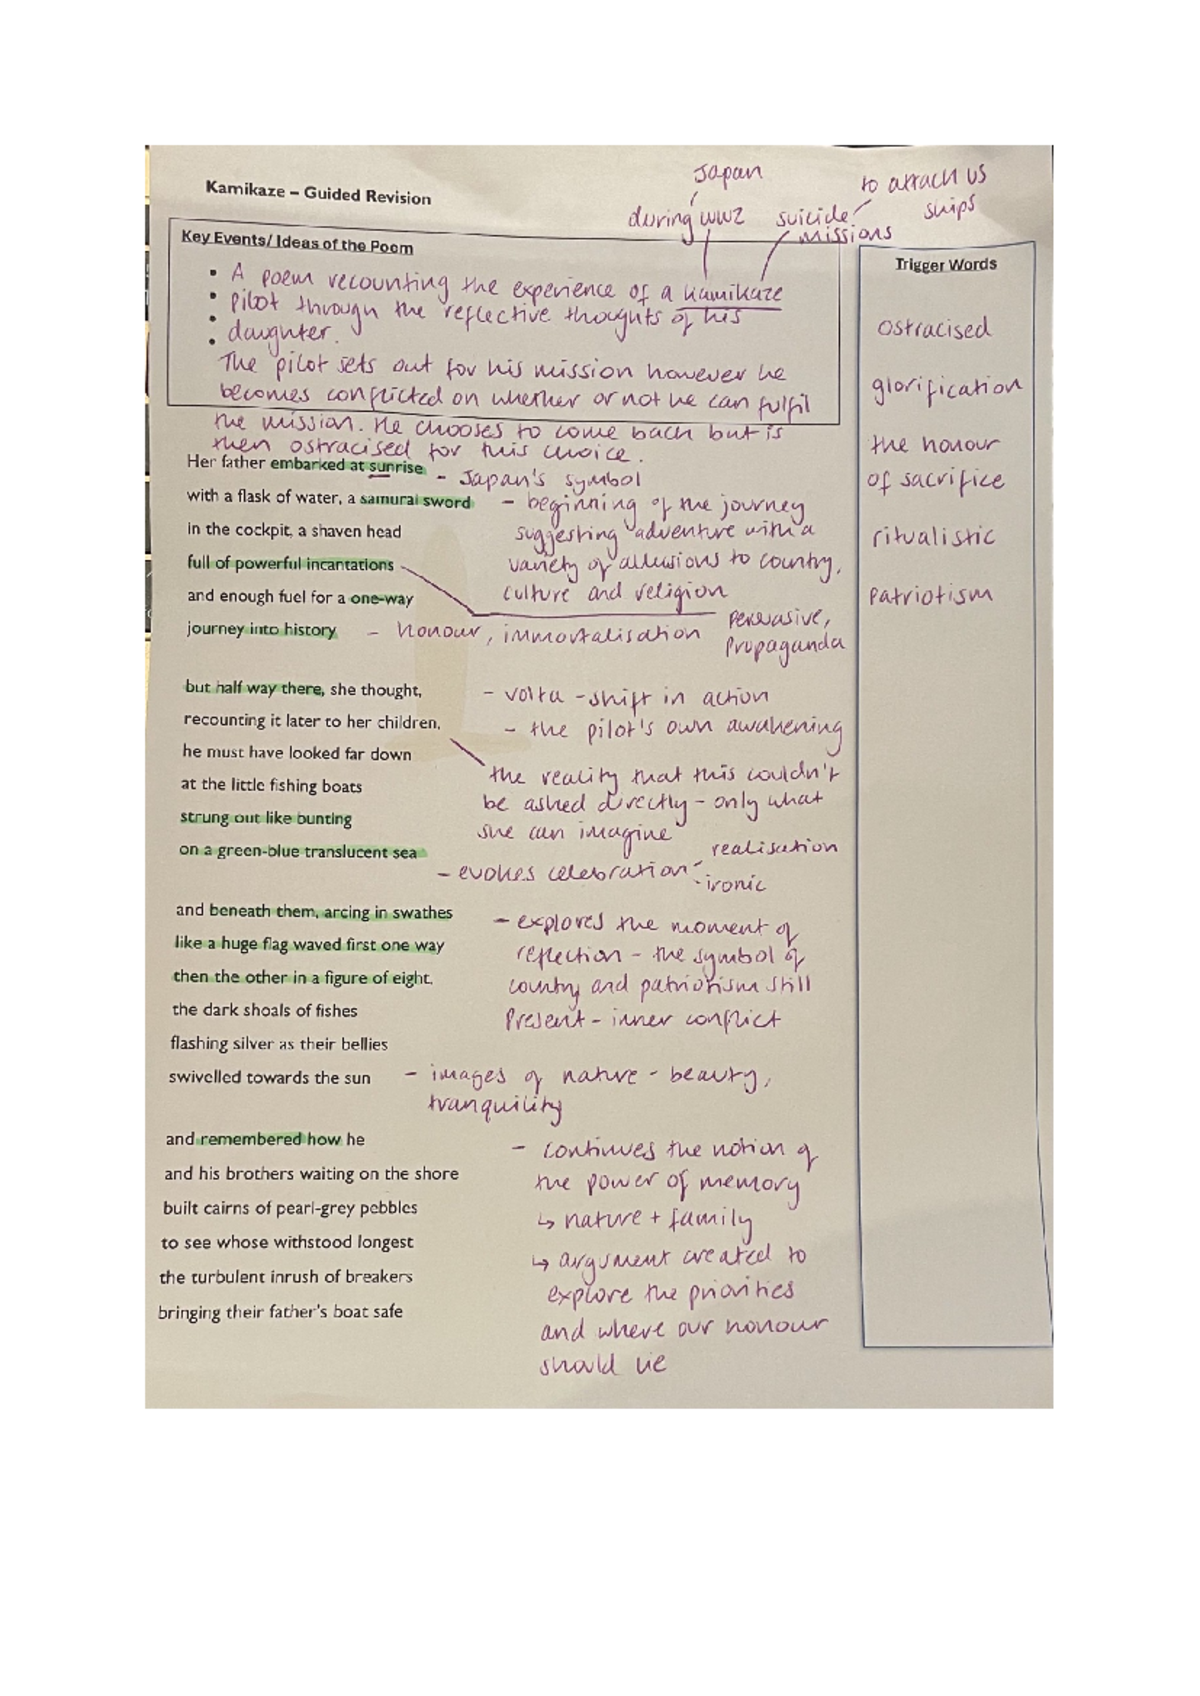 Japan
to attack US
ships
during WW2
suicide
missions
Kamikaze – Guided Revision
Key Events/ Ideas of the Poem
• A poem recounting the experience of a kamikaze
• pilot through the reflective thoughts of his
• daughter.
• The pilot sets out for his mission however he
becomes conflicted on whether or not he can fulfil
the mission. He chooses to come back but is
then ostracised for this choice.
Trigger Words
ostracised
glorification
the honour
of sacrifice
ritualistic
patriotism
Her father embarked at sunrise
- Japan's symbol
with a flask of water, a samurai sword
in the cockpit, a shaven head
full of powerful incantations
and enough fuel for a one-way
journey into history
- beginning of the journey
suggesting adventure with a
variety of allusions to country,
culture and religion
persuasive,
propaganda
- honour, immortalisation
but half way there, she thought,
recounting it later to her children,
he must have looked far down
at the little fishing boats
strung out like bunting
on a green-blue translucent sea
- volta - shift in action
- the pilot's own awakening
the reality that this couldn't
be asked directly - only what
she can imagine
- evokes celebration
realisation
- ironic
and beneath them, arcing in swathes
like a huge flag waved first one way
then the other in a figure of eight,
the dark shoals of fishes
flashing silver as their bellies
swivelled towards the sun
- explores the moment of
reflection - the symbol of
country and patriotism still
present - inner conflict
- images of nature - beauty,
tranquility
and remembered how he
and his brothers waiting on the shore
built cairns of pearl-grey pebbles
to see whose withstood longest
the turbulent inrush of breakers
bringing their father's boat safe
- continues the notion of
the power of memory
↳ nature + family
↳ argument created to
explore the priorities
and where our honour
should lie